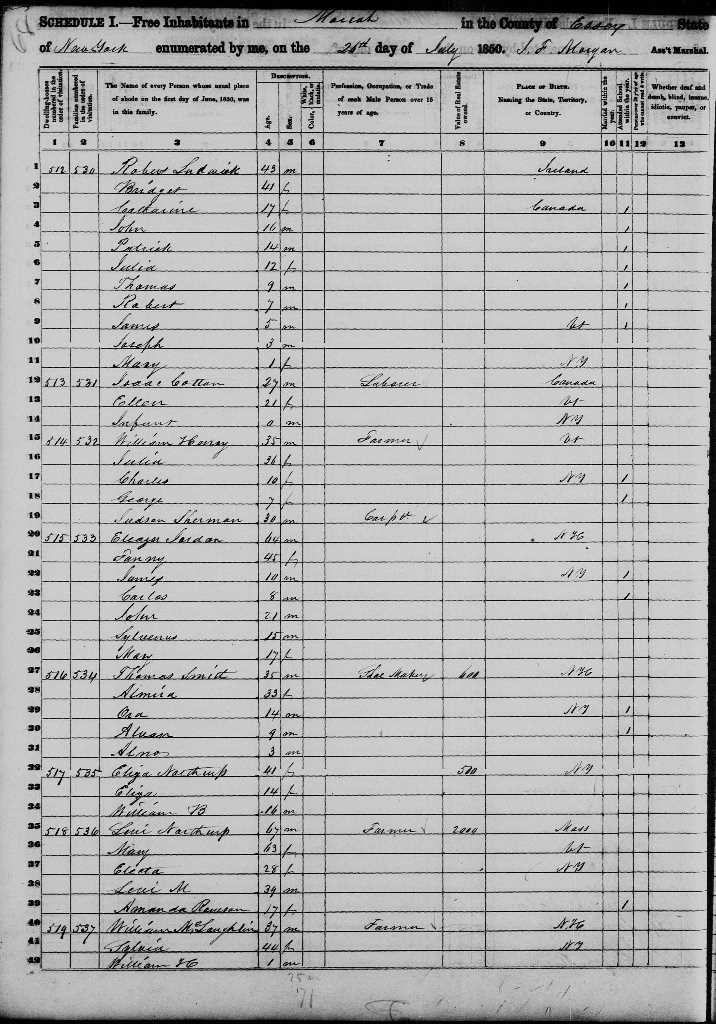 SCHEDULE I.—Free Inhabitants in Moriah in the County of Essex State
of New York enumerated by me, on the 26th day of July 1850. Morgan Ass't Marshal.
Dwelling-houses numbered in the order of visitation.
Families numbered in the order of visitation.
The Name of every Person whose usual place of abode on the first day of June, 1850, was in this family.
DESCRIPTION.
Age.
Sex.
White, black, or mulatto.
Color,
Profession, Occupation, or Trade of each Male Person over 15 years of age.
Value of Real Estate owned.
PLACE OF BIRTH.
Naming the State, Territory, or Country.
Married within the year.
Attended School within the year.
Persons over 20 y'rs of age who cannot read & write.
Whether deaf and dumb, blind, insane, idiotic, pauper, or convict.
1 2 3 4 5 6 7 8 9 10 11 12 13
1 512 530 Robert Ludwick 43 m Ireland
2 Bridget 41 f
3 Catharine 17 f Canada 1
4 John 16 m 1
5 Patrick 14 m 1
6 Julia 12 f 1
7 Thomas 9 m 1
8 Robert 7 m 1
9 James 5 m Vt 1
10 Joseph 3 m
11 Mary 1 f NY
12 513 531 Isaac Cotton 27 m Laborer Canada
13 Ellen 21 f Vt
14 Infant 0 m NY
15 514 532 William Henry 35 m Farmer Vt
16 Julia 36 f
17 Charles 10 f NY 1
18 George 7 f 1
19 Judson Sherman 30 m Carpt
20 515 533 Eleazer Jordan 64 m NH
21 Fanny 45 f
22 James 10 m NY 1
23 Carlos 8 m 1
24 John 21 m
25 Sylvenus 15 m
26 Mary 17 f
27 516 534 Thomas Smith 35 m Shoe Maker 600 NH
28 Almira 33 f
29 Ora 14 m NY 1
30 Alvan 9 m 1
31 Alno 3 m
32 517 535 Eliza Northrup 41 f 500 NY
33 Eliza 14 f
34 William B 16 m
35 518 536 Levi Northrup 67 m Farmer 2000 Mass
36 Mary 63 f Vt
37 Electa 28 f NY
38 Levi M 39 m
39 Amanda 17 f 1
40 519 537 William McLaughlin 37 m Farmer NH
41 Sylvia 44 f NY
42 William H 1 m
71